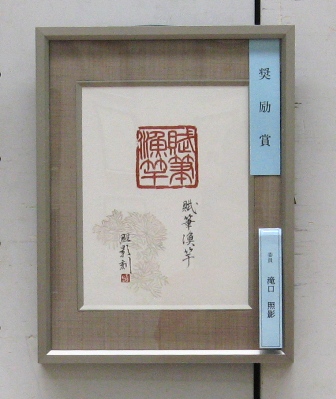 奨励賞
賦筆漁竿
賦筆漁竿
照影刻
会員
滝口 照影